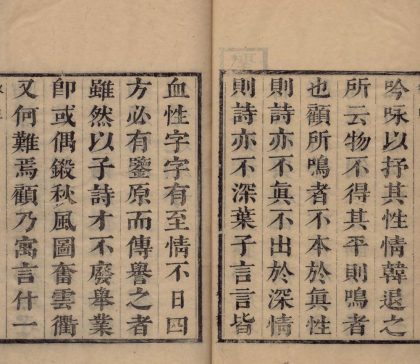 吟咏以抒其性情韓退之
所云物不得其平則鳴者
也顧所鳴者不本於眞性
則詩亦不眞不出於深情
則詩亦不深葉子言言皆
血性字字有至情不日四
方必有鑒原而傳譽之者
雖然以子詩才不廢舉業
卽或偶鎩秋風圖奮雲衢
又何難焉顧乃寓言什一